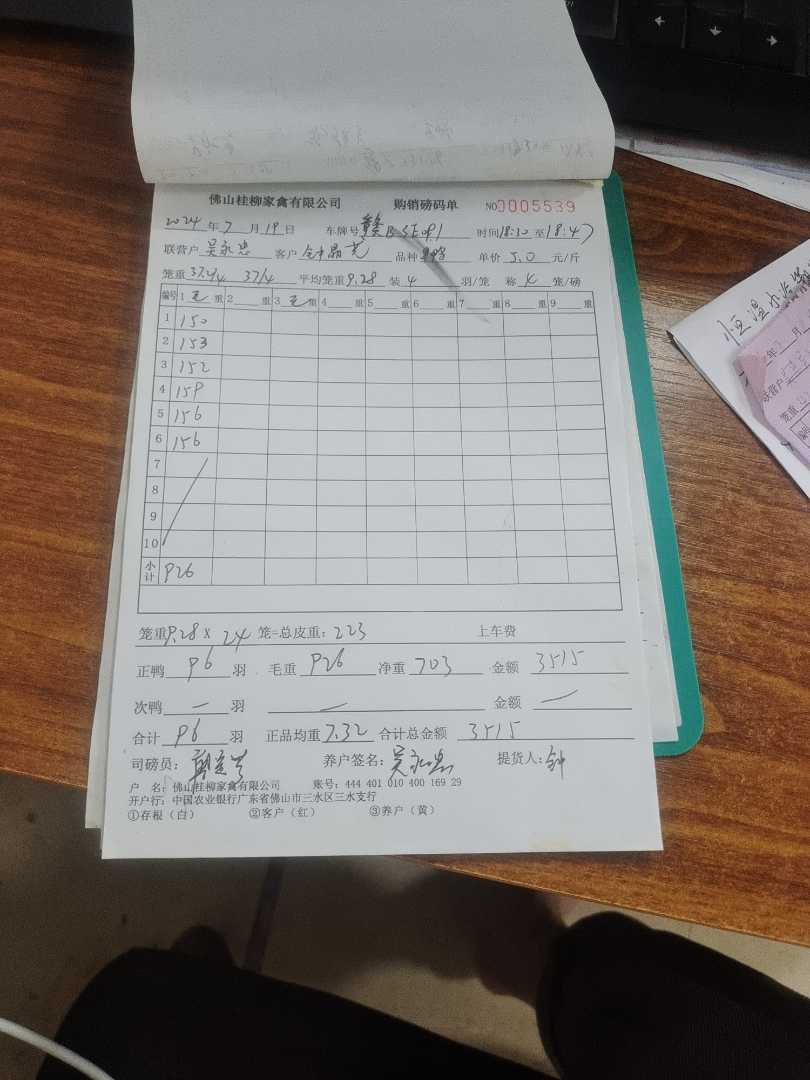 佛山桂柳家禽有限公司 购销磅码单 NO 0005539
2024年7月19日 车牌号 赣B 时间18:30至18:47
联营户 吴永忠 客户 钟晶 品种 单价 5.0 元/斤
笼重 37/4 平均笼重9.28 装 4 羽/笼 称 4 笼/磅
编号 1 毛重 2 重 3 毛重 4 重 5 重 6 重 7 重 8 重 9 重
1 150
2 153
3 152
4 159
5 156
6 156
7
8
9
10
小计 926
笼重9.28 X 24 笼=总皮重：223 上车费
正鸭 96 羽 毛重 926 净重 703 金额 3515
次鸭 — 羽 — 金额 —
合计 96 羽 正品均重 7.32 合计总金额 3515
司磅员： 养户签名：吴永忠 提货人：钟
户 名：佛山桂柳家禽有限公司 账号：444 401 010 400 169 29
开户行：中国农业银行广东省佛山市三水区三水支行
①存根（白） ②客户（红） ③养户（黄）
恒温
年 月
联营户
笼重
编号